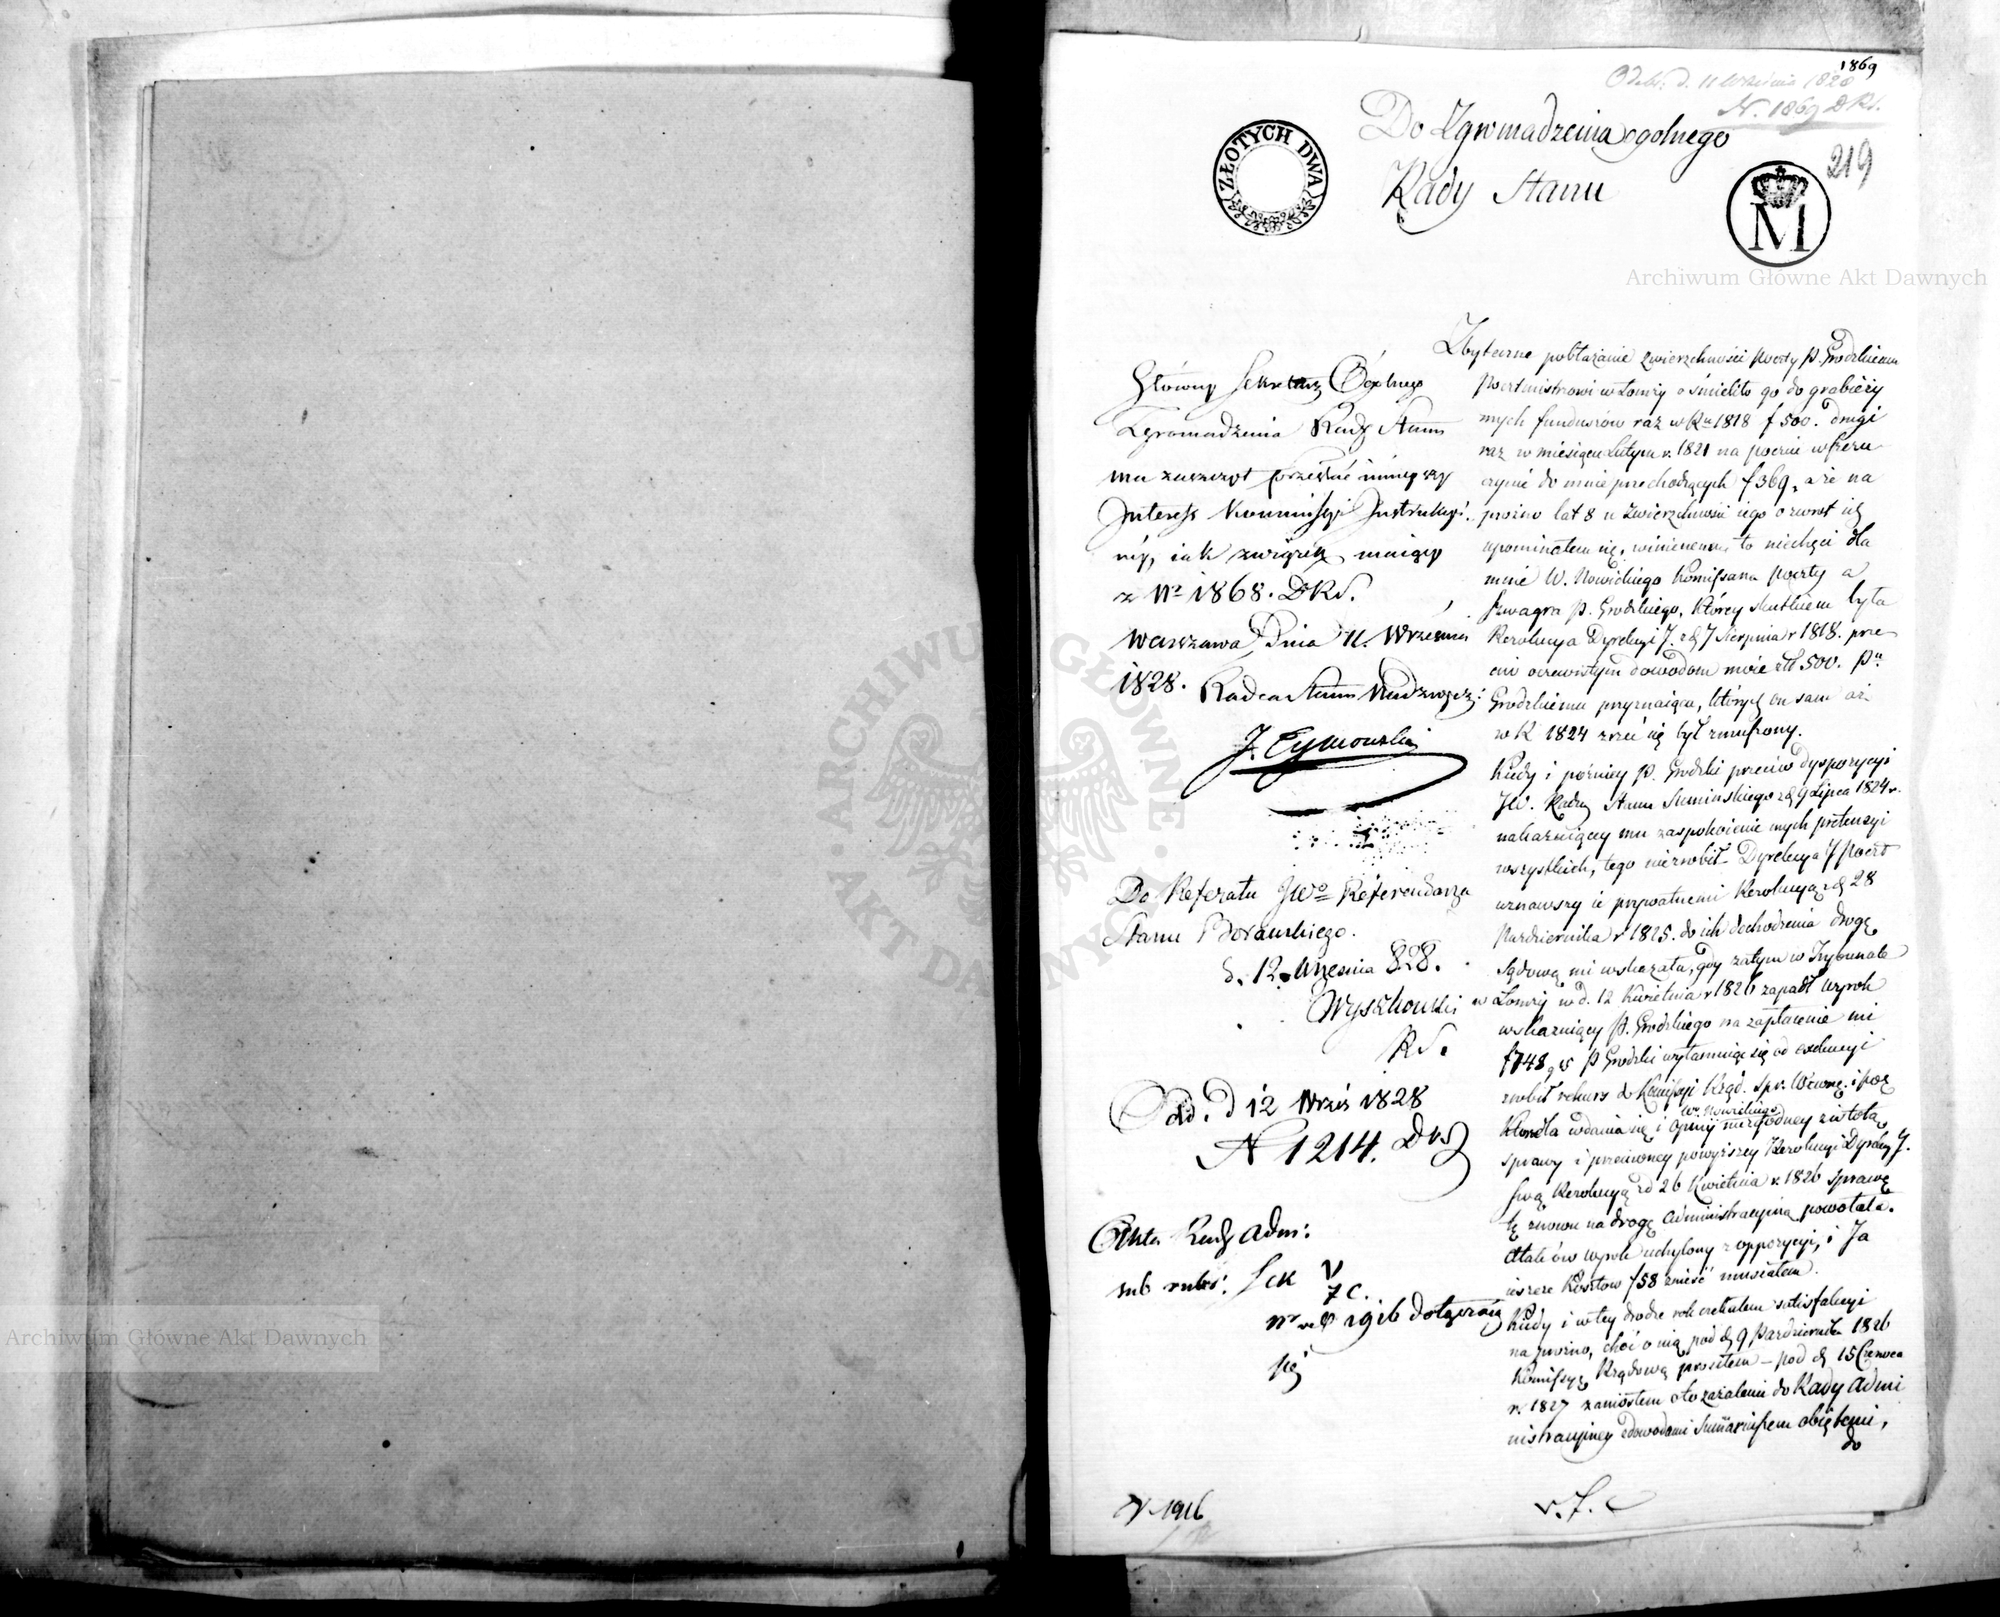 1869
Odebr. d. 11 Września 1828
N. 1869 DRS.
219
Do Zgromadzenia ogolnego
Rady Stanu
ZŁOTYCH DWA
M
Archiwum Główne Akt Dawnych
Główny Sekretarz Ogolnego
Zgromadzenia Rady Stanu
ma zaszczyt przesłać ninieyszy
Interess Kommissyi Instrukcyi
ney, iak związek maiący
z Nr 1868. DRS.
Warszawa Dnia 11. Września
1828. Radca Stanu Nadzwycz:
J. Tymowski
Do Referatu JWo Referendarza
Stanu
d. 12. Września 828.
Wyszkowski
RS.
Odd. d 12 Wrześ 1828
N 1214.
Akta Rady Adm:
sub rubr:
7 C.
1916 dołączaią
się
N 1916
Zbyteczne pobłażanie zwierzchności Poczty P. Grodzkiemu
Pocztmistrzowi w Łomży ośmieliło go do grabieży
mych funduszów raz w Ru 1818 f 500. drugi
raz w miesiącu Lutym r. 1821 na poczcie w
do mnie przechodzących f 369, a że na
prożno lat 8 u Zwierzchności iego o zwrot ich
upominałem się, winienem to niechęci dla
mnie W. Nowickiego Komissarza Poczty a
Szwagra P. Grodzkiego, którey skutkiem była
Rezolucya Dyrekcyi J. z d 7 Sierpnia r 1818. prze
ciw oczewistym dowodom moie zł 500. Pu
Grodzkiemu przyznaiąca, których on sam aż
w R 1824 zrzec się był zmuszony.
Kiedy i poźniey P. Grodzki przeciw dyspozycyi
JW. Radcy Stanu Suminskiego z d 9 Lipca 1824 r.
nakazuiącey mu zaspokoienie mych pretensyi
wszystkich, tego niezrobił Dyrekcya J Poczt
uznawszy ie prywatnemi Rezolucyą z d 28
Października r 1825. do ich dochodzenia drogę
sądową mi wskazała, gdy zatym w Trybunale
w Łomży w d. 12 Kwietnia r 1826 zapadł wyrok
wskazuiący P. Grodzkiego na zapłacenie mi
f 748 P Grodzki wyłamuiąc się od exekucyi
zrobił rekurs do Komissyi Rząd. Spr. Wewnę. i ta
W. Nowickiego
wdania się i opinij niezgodney z istotą
sprawy i przeciwney powyższey Rezolucyi Dyrekcyi J.
swą Rezolucyą z d 26 Kwietnia r. 1826 sprawę
tę znowu na drogę administracyiną powołała.
Atak ów wyrok uchylony z oppozycyi, i Ja
ieszcze Kosztow f 58 znieść musiałem.
Kiedy i w tey drodze rok czekałem satisfakcyi
na prożno, choć o nią pod d 9 Października 1826
Komissyą Rządową prosiłem – pod d 15 Czerwca
r. 1827 zaniosłem oto zażalenie do Rady Admi
nistracyiney z dowodami Sumaryuszem obiętemi,
do
v. f. c
Archiwum Główne Akt Dawnych
ARCHIWUM GŁÓWNE AKT DAWNYCH